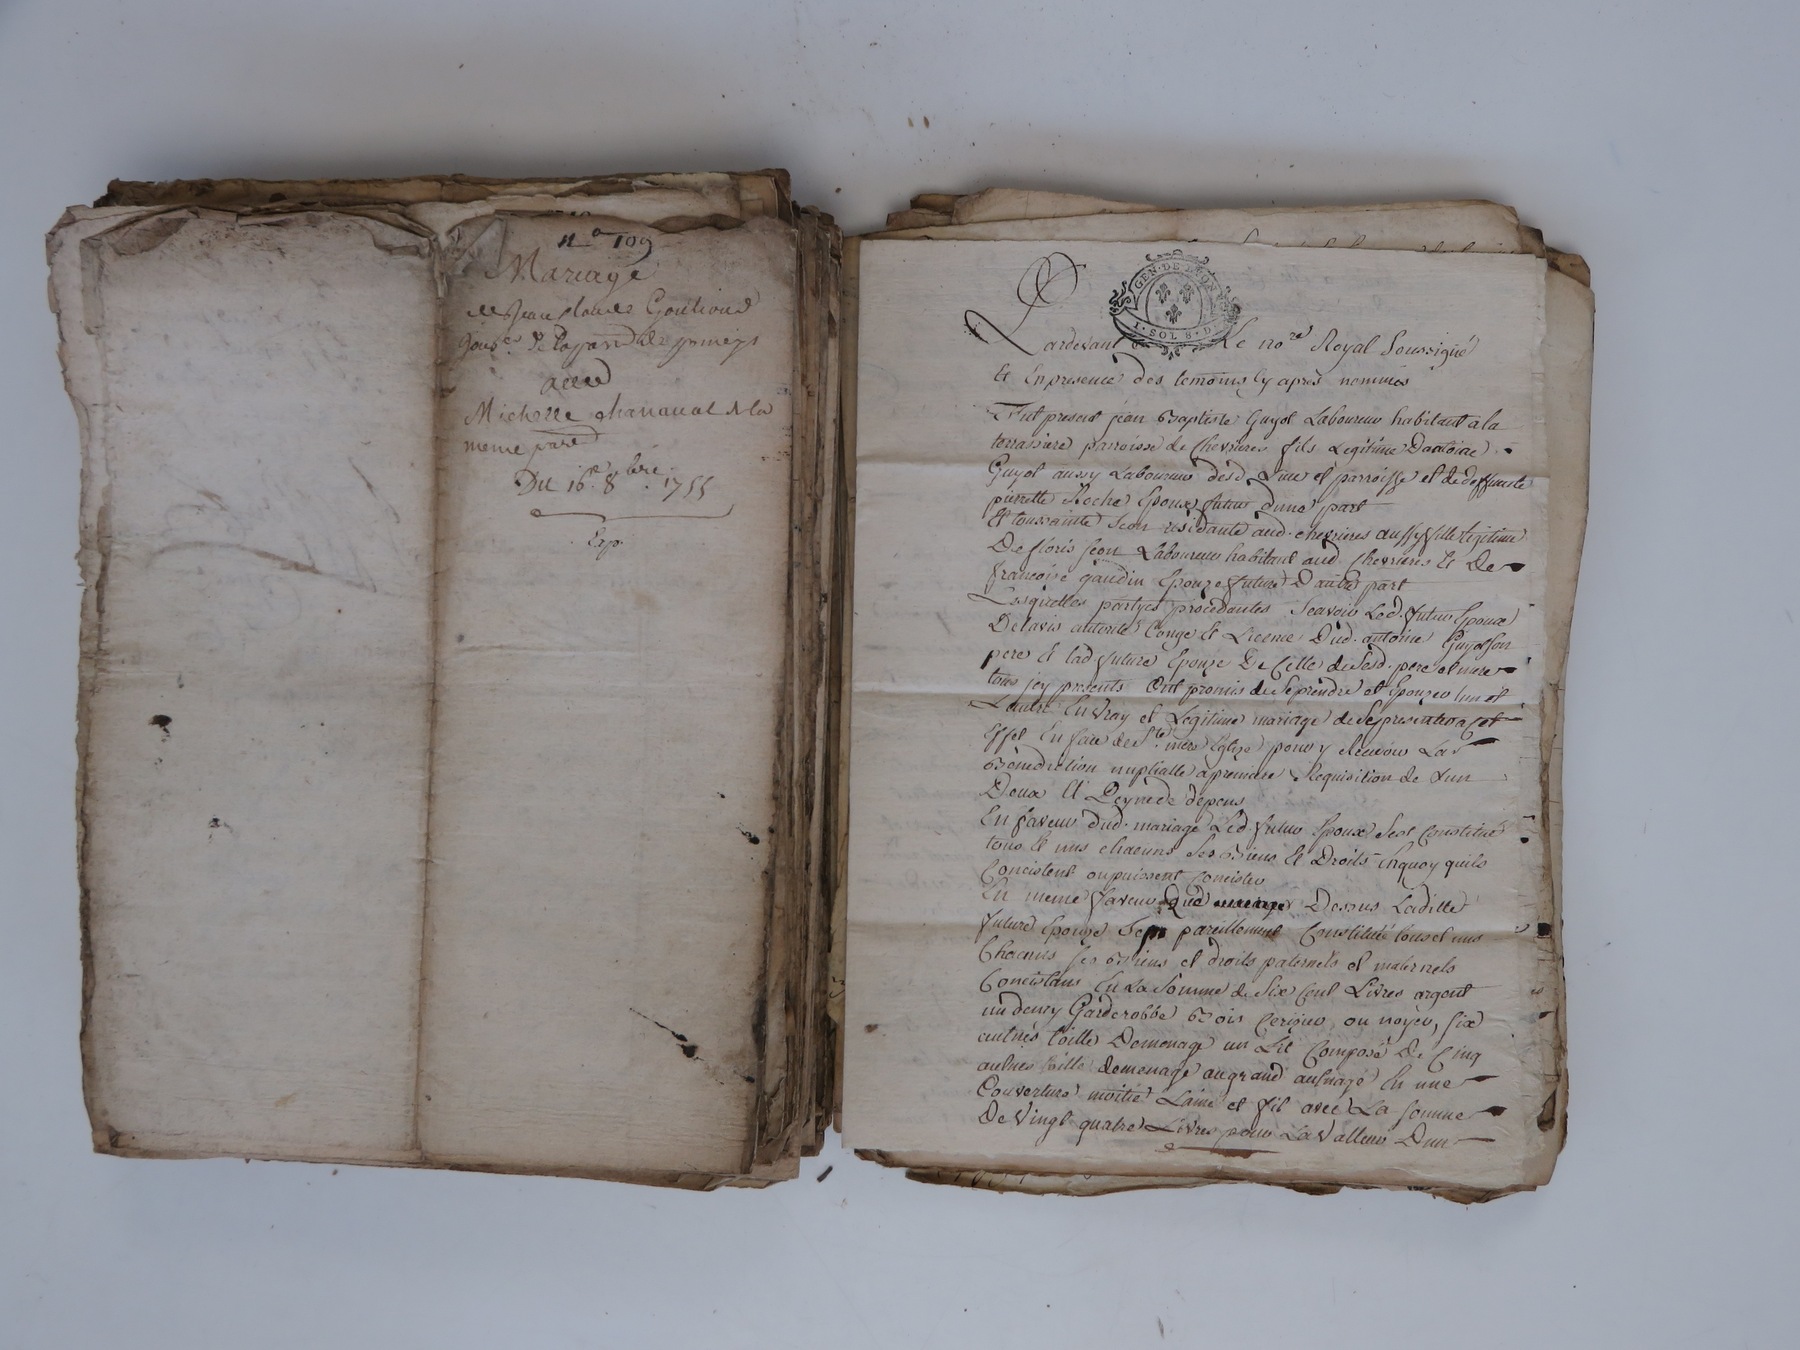 n.o 109
Mariage
de Jean Claude
de la par.
avec
Michelle chanavat de la
meme parr.
Du 16e. 8bre. 1755
Exp.
GEN. DE LYON
1. SOL 8. D.
Pardevant Le nore Royal Soussigné
Et En presence des temoins Cy après nommés
Fut present jean Baptiste Guyot Laboureur habitant a la
terrassiere parroisse de chevrieres fils Legitime Dantoine
Guyot aussy Laboureur desd. Lieu et parroisse et de deffuncte
pierrette Roche Epoux futur Dune part
Et toussainte jeon residante aud. chevrieres aussy fille Legitime
De floris jeon Laboureur habitant aud. Chevrieres Et De
francoise gaudin Epouze future D'autre part
Lesquelles partyes procedantes Scavoir Led. futur Epoux
De lavis autorité Congé Et Licence Dud. antoine Guyot son
pere Et lad. future Epouze De Celle de sesd. pere et mere
tous jcy presents Ont promis de se prendre et Epouzer lun et
Lautre En vray et Legitime mariage de se presenter a cet
Effet En face de Ste. mere Eglize pour y recevoir La
Benediction nuptialle a premiere Requisition de Lun
Deux Et a peyne de depens
En faveur dud. mariage Led. futur Epoux sest Constitué
tous Et uns chacuns ses Biens Et Droits En quoy quils
Concistent ou puissent concister
En meme faveur que Dessus Laditte
future Epouze sest pareillement Constitué tous et uns
Chacuns ses Biens et droits paternels et maternels
Concistans En La somme de six Cent Livres argent
un demy Garderobbe Bois Cerizier ou noyer, six
autnes toille De menage un Lit Composé De Cinq
autnes toille de menage au grand autnage En une
Couverture moitié Laine et fil avec La somme
De Vingt quatre Livres pour La Valleur Dun